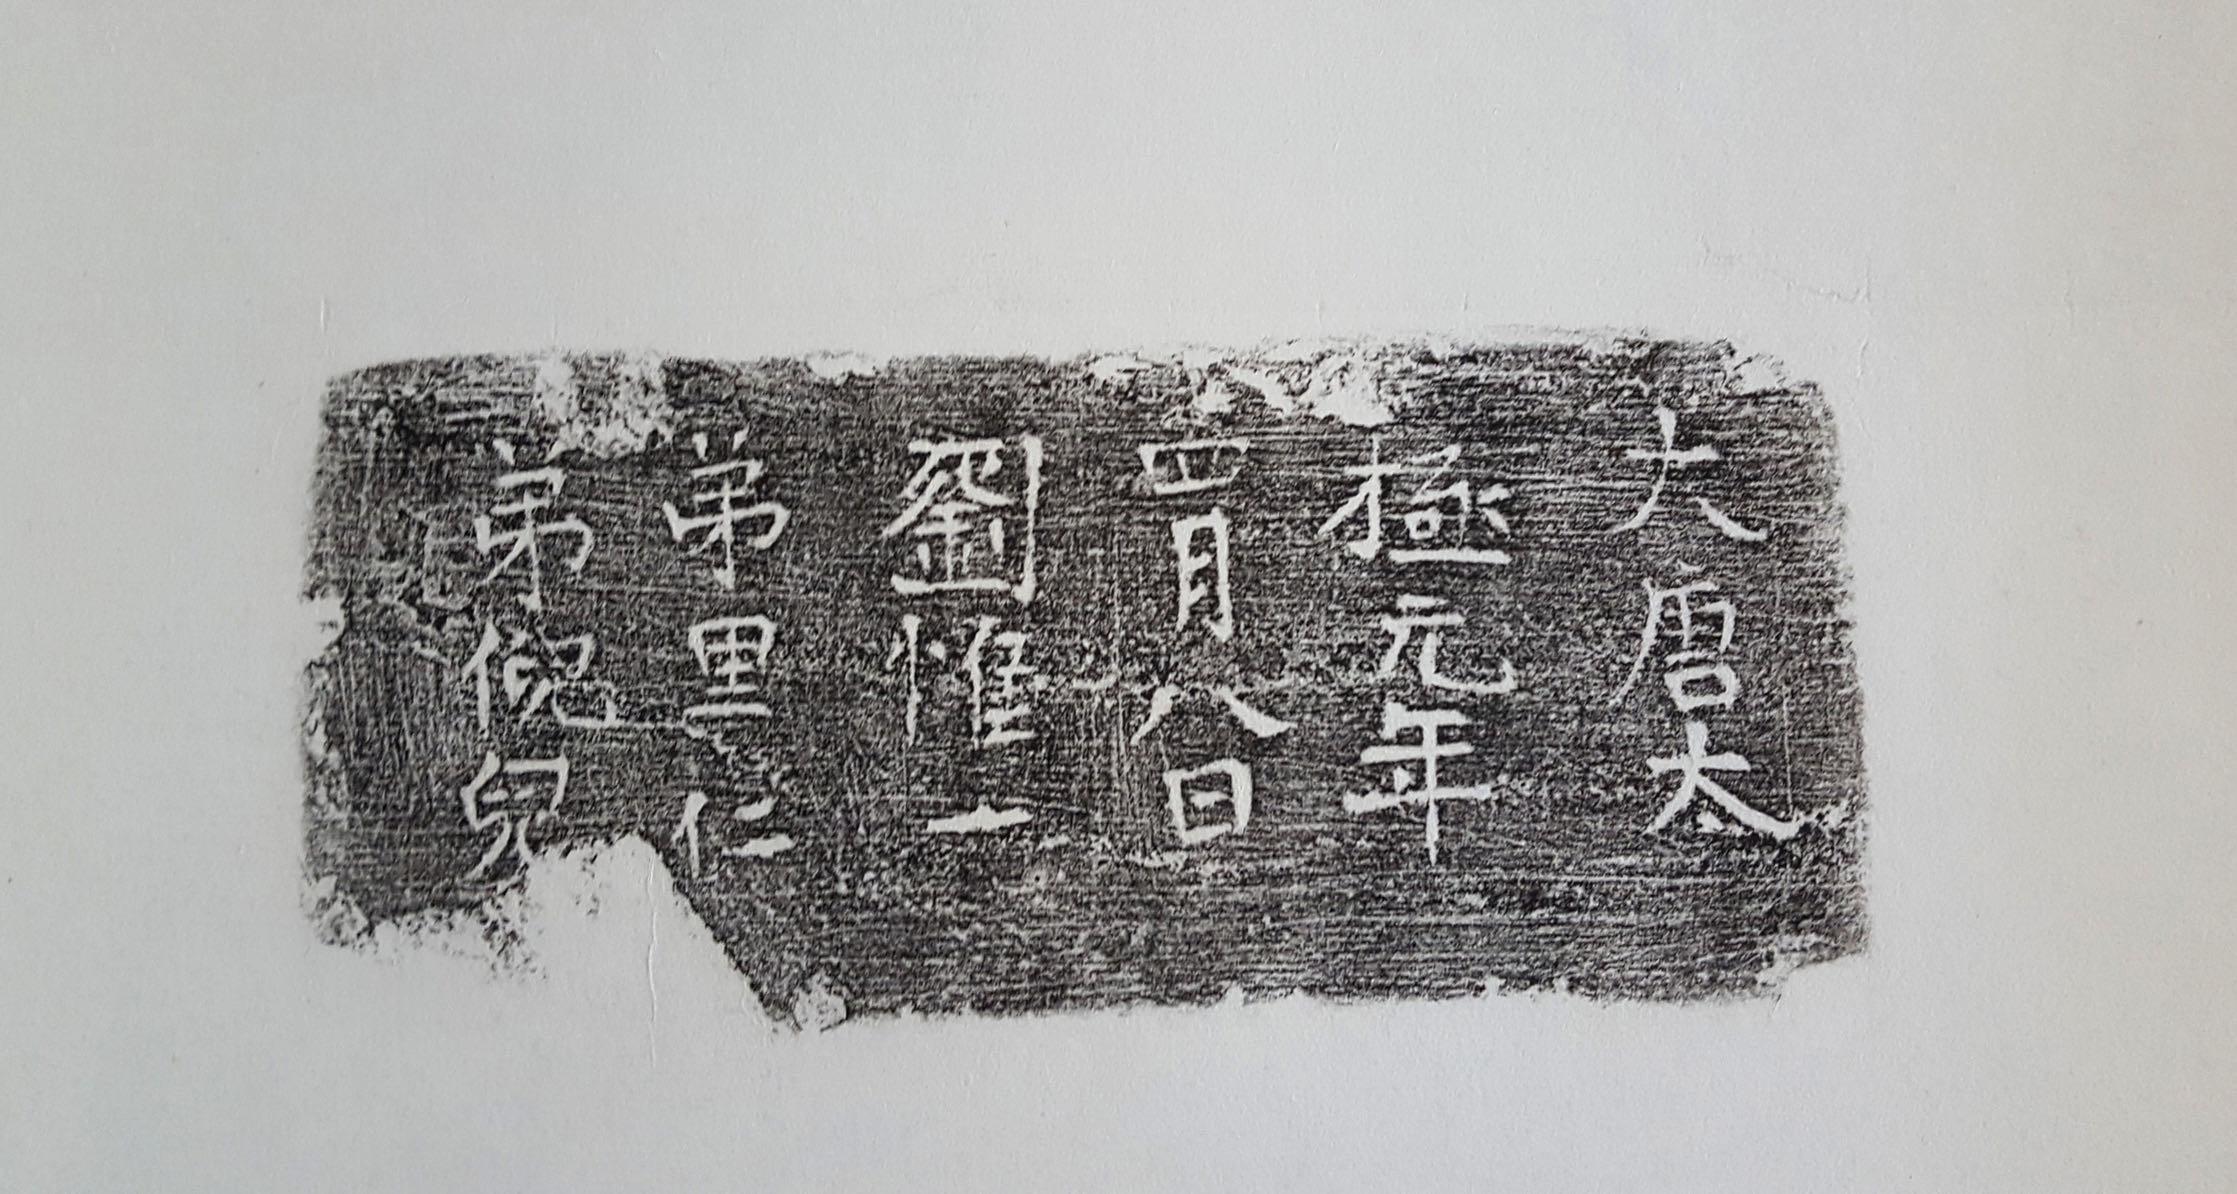 大唐太
極元年
四月八日
劉惟一
弟里仁
弟倪兒